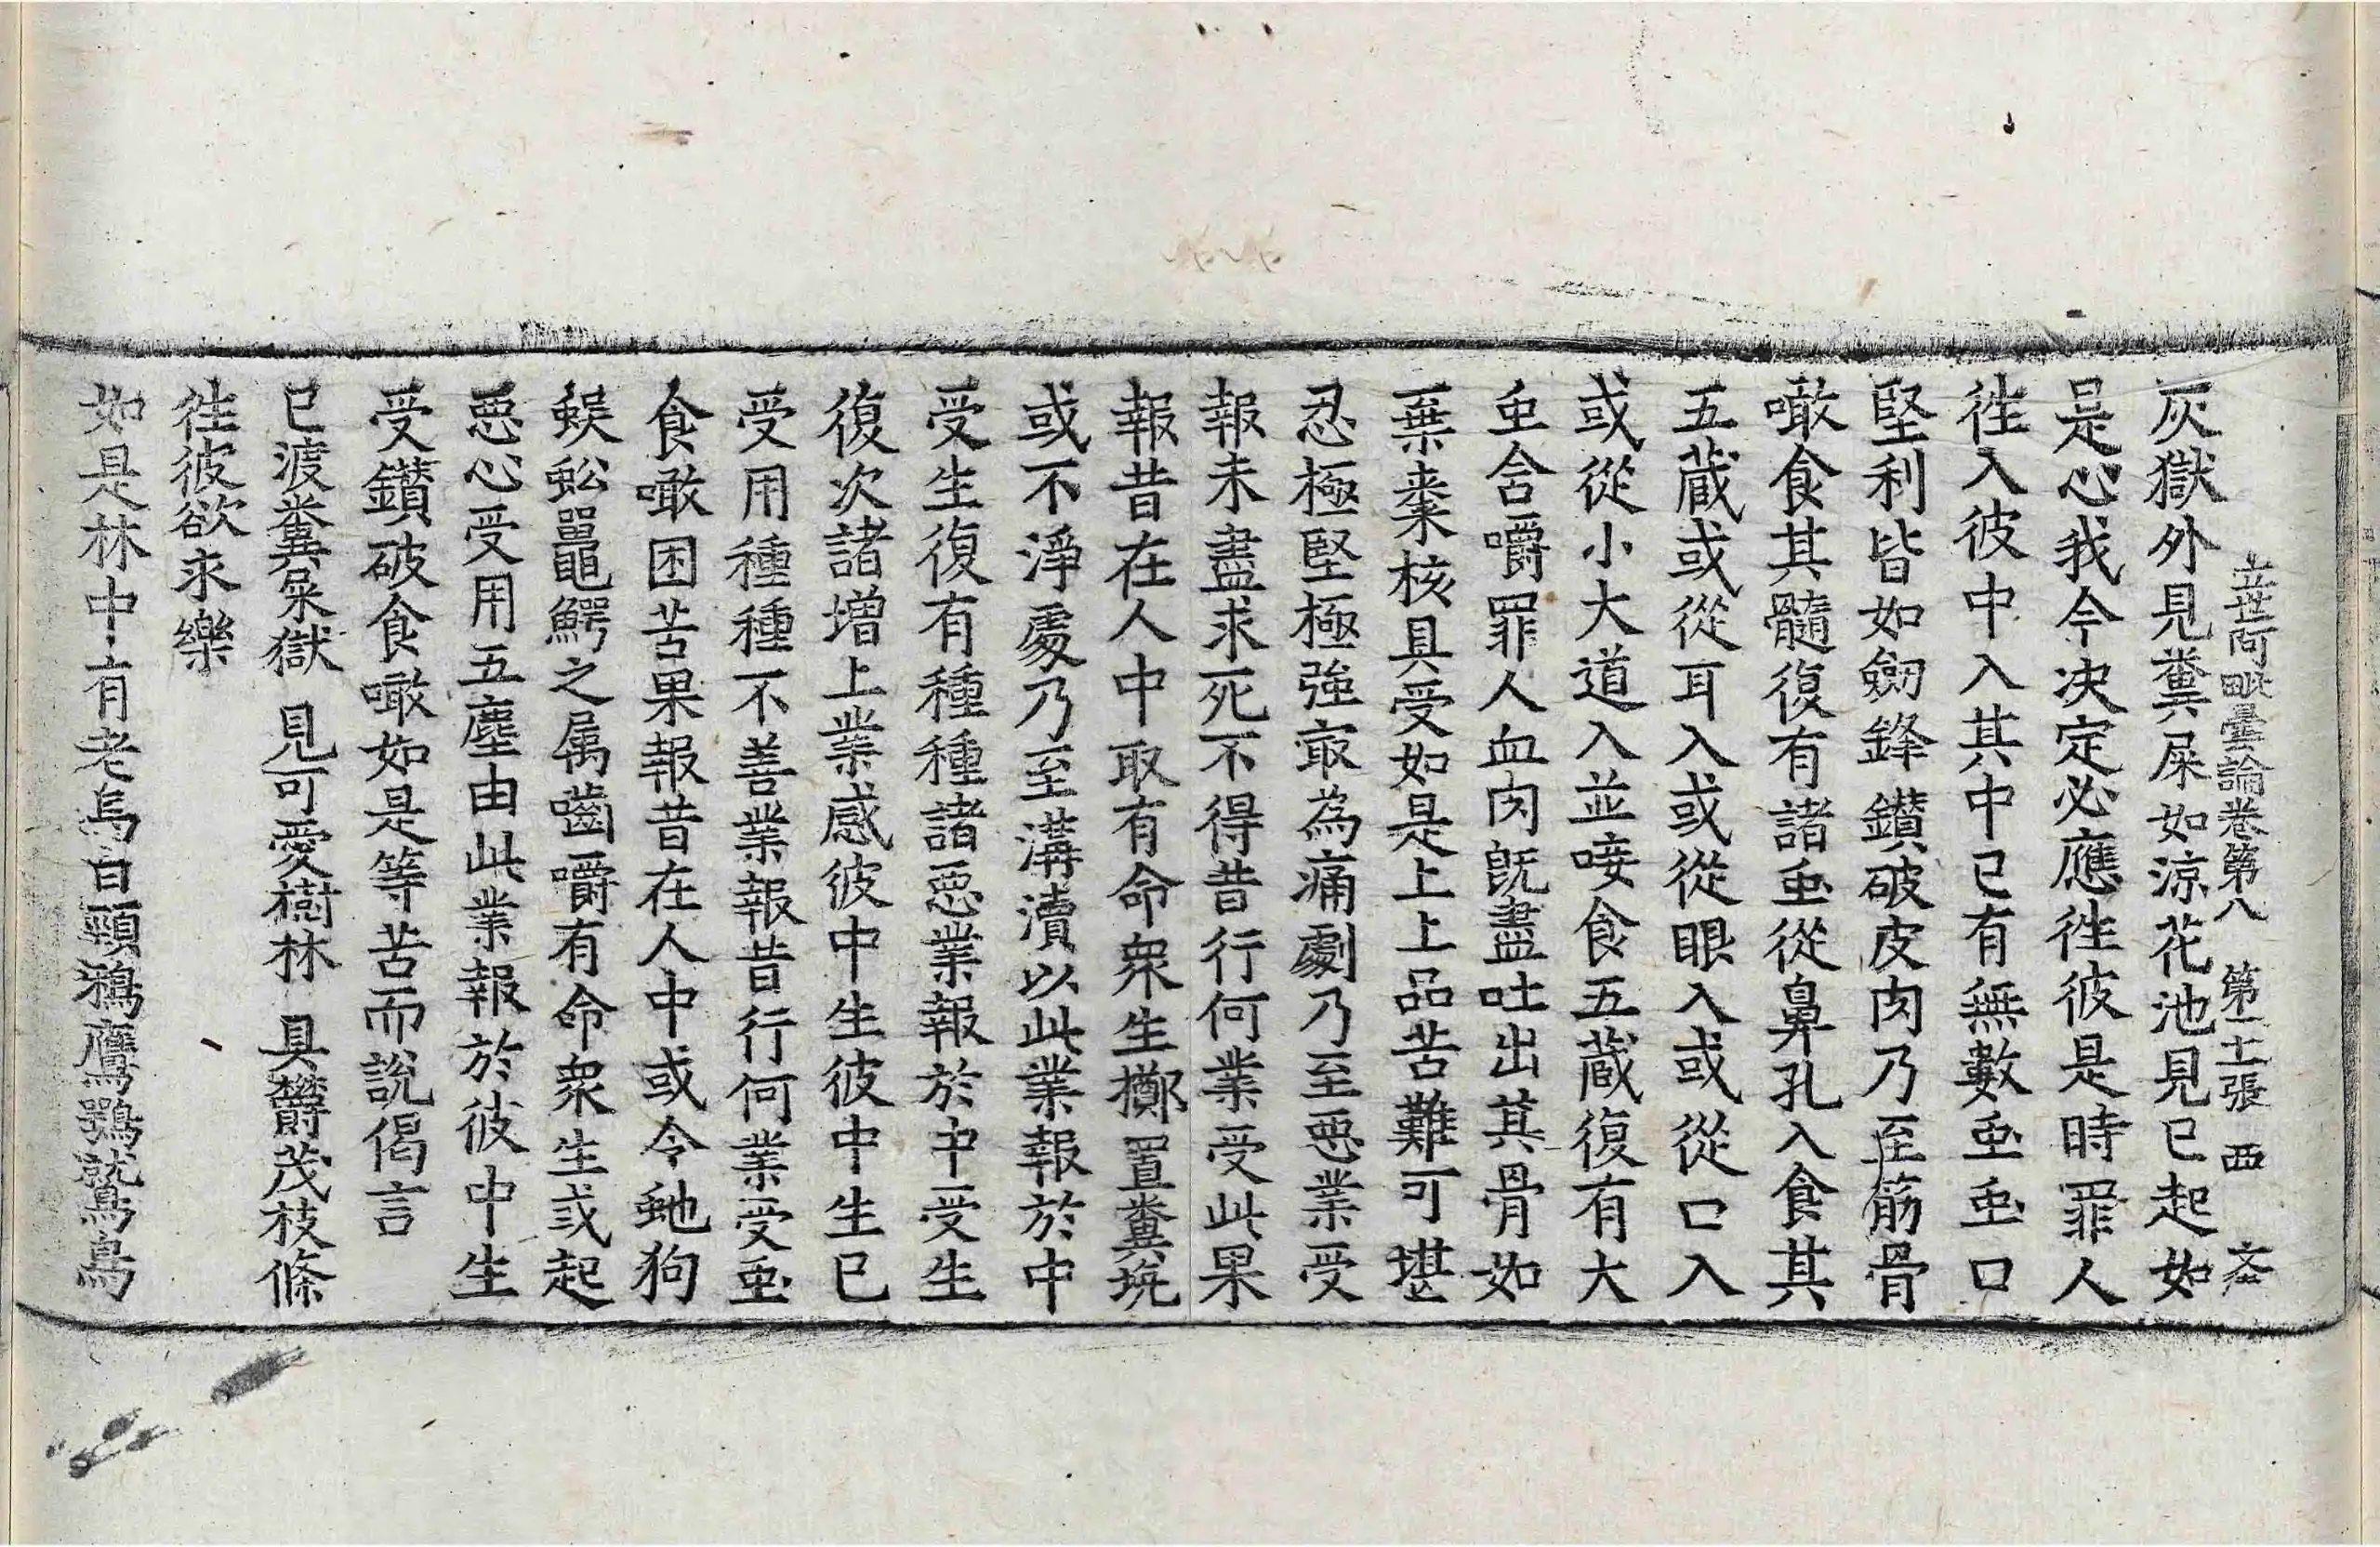 立世阿毗曇論卷第八 第十張 西
灰獄外見糞屎如涼花池見已起如
是心我今决定必應徃彼是時罪人
徃入彼中入其中已有無數䖝䖝口
堅利皆如劒鋒鑽破皮肉乃至筋骨
噉食其髓復有諸䖝從鼻孔入食其
五蔵或從耳入或從眼入或從口入
或從小大道入並唼食五蔵復有大
䖝含嚼罪人血肉旣盡吐出其骨如
棄棗核具受如是上上品苦難可堪
忍極堅極強㝡為痛劇乃至惡業受
報未盡求死不得昔行何業受此果
報昔在人中取有命衆生擲置糞坑
或不淨處乃至溝瀆以此業報於中
受生復有種種諸惡業報於中受生
復次諸增上業感彼中生彼中生已
受用種種不善業報昔行何業受䖝
食噉困苦果報昔在人中或令虵狗
蜈蚣黽鰐之属嚙嚼有命衆生或起
惡心受用五塵由此業報於彼中生
受鑽破食噉如是等苦而說偈言
已渡糞屎獄 見可愛樹林 具欝茂枝條
徃彼欲求樂
如是林中有老烏白頸鵶鷹鶚鷲鳥